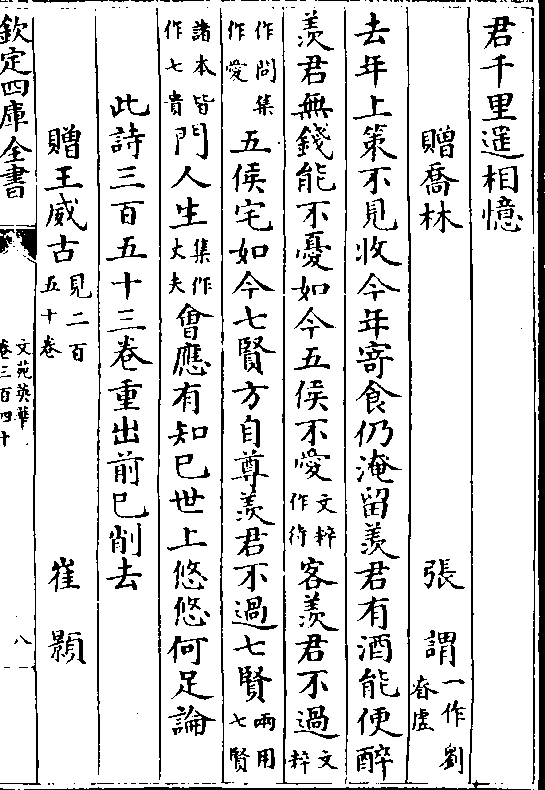 君千里遥相憶
贈喬林 張謂 一作劉昚虛
去年上策不見收今年寄食仍淹留羡君有酒能便醉
羡君無錢能不憂如今五侯不愛文粹作待客羡君不過文粹
作問集作愛五侯宅如今七賢方自尊羡君不過七賢兩用七賢
諸本皆作七貴門人生集作丈夫會應有知已世上悠悠何足論
此詩三百五十三卷重出前已削去
贈王威古見二百五十卷 崔顥
欽定四庫全書 文苑英華 卷三百四十 八